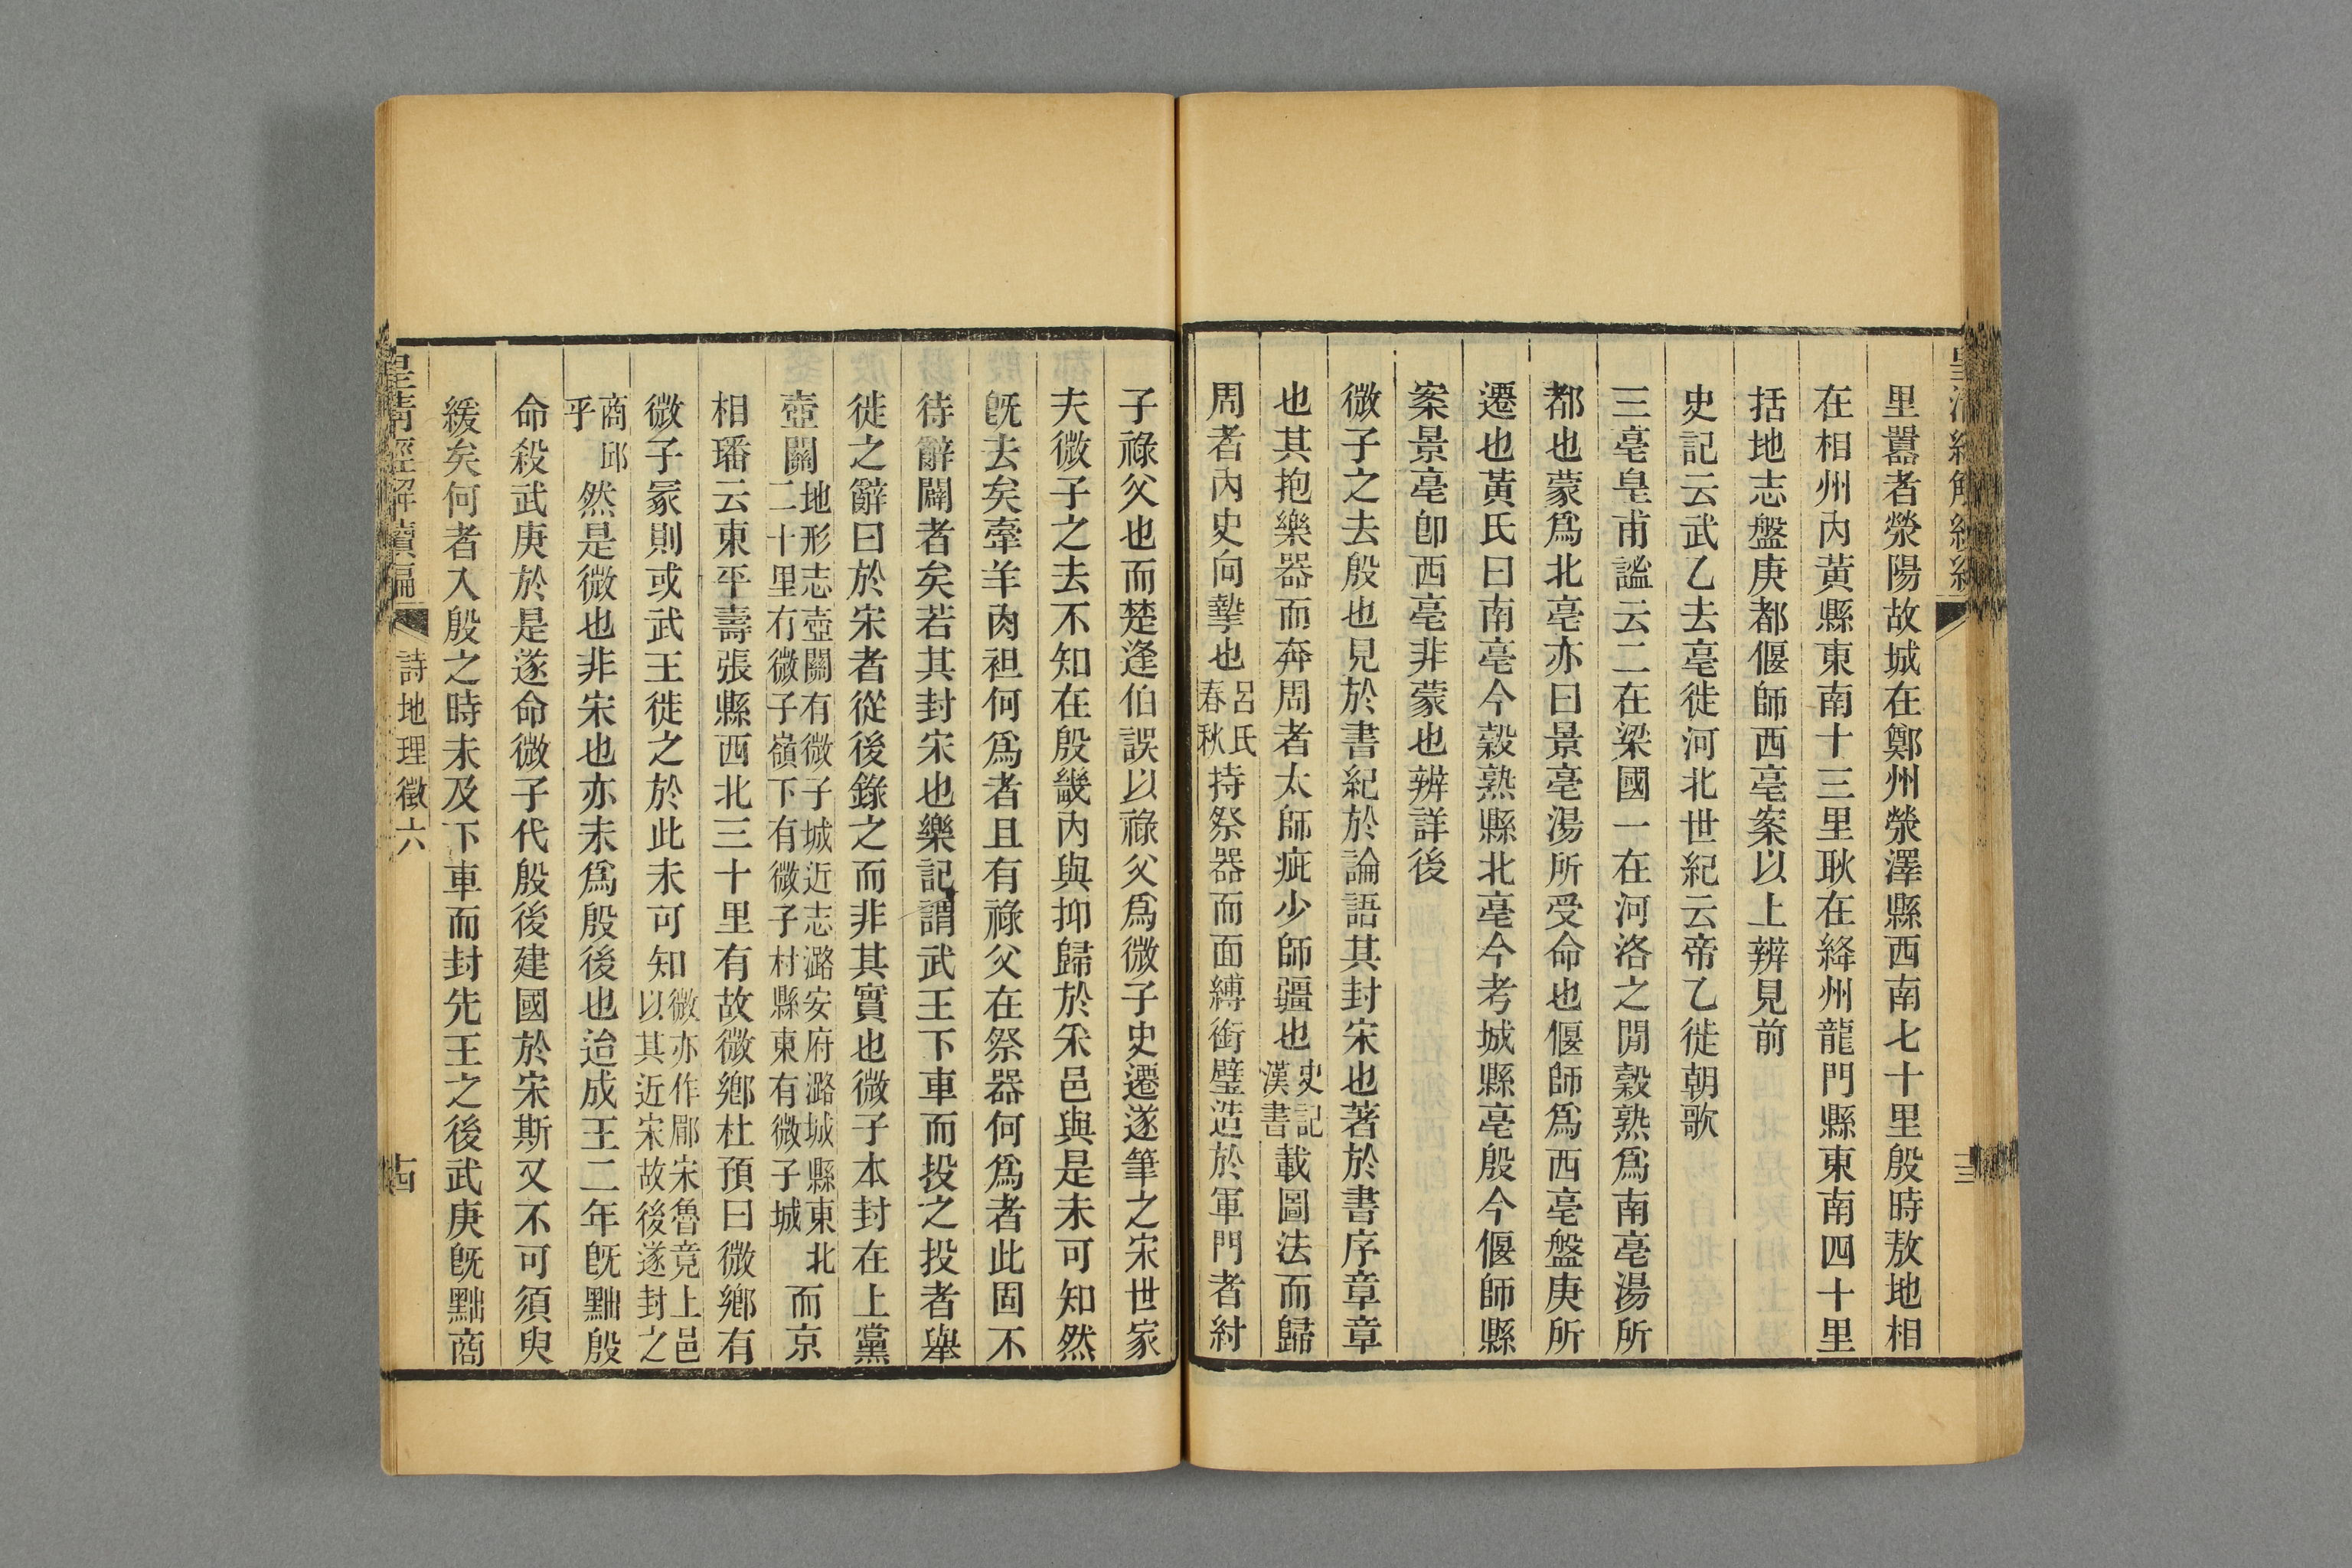 里囂者滎陽故城在鄭州滎澤縣西南七十里殷時敖地相
在相州內黃縣東南十三里耿在絳州龍門縣東南四十里
括地志盤庚都偃師西亳案以上辨見前
史記云武乙去亳徙河北世紀云帝乙徙朝歌
三亳皇甫謐云二在梁國一在河洛之閒穀熟爲南亳湯所
都也蒙爲北亳亦曰景亳湯所受命也偃師爲西亳盤庚所
遷也黃氏曰南亳今穀熟縣北亳今考城縣亳殷今偃師縣
案景亳卽西亳非蒙也辨詳後
微子之去殷也見於書紀於論語其封宋也著於書序章章
也其抱樂器而奔周者太師疵少師疆也史記漢書載圖法而歸
周者內史向摯也呂氏春秋持祭器而面縛銜璧造於軍門者紂
子祿父也而楚逢伯誤以祿父爲微子史遷遂筆之宋世家
夫微子之去不知在殷畿內與抑歸於采邑與是未可知然
旣去矣牽羊肉袒何爲者且有祿父在祭器何爲者此固不
待辭闢者矣若其封宋也樂記謂武王下車而投之投者舉
徙之辭曰於宋者從後錄之而非其實也微子本封在上黨
壺關地形志壺關有微子城近志潞安府潞城縣東北二十里有微子嶺下有微子村縣東有微子城而京
相璠云東平壽張縣西北三十里有故微鄉杜預曰微鄉有
微子冢則或武王徙之於此未可知微亦作郿宋魯竟上邑以其近宋故後遂封之
商邱乎然是微也非宋也亦未爲殷後也迨成王二年旣黜殷
命殺武庚於是遂命微子代殷後建國於宋斯又不可須臾
緩矣何者入殷之時未及下車而封先王之後武庚旣黜商
皇清經解續編
詩地理徵六
十四
十三